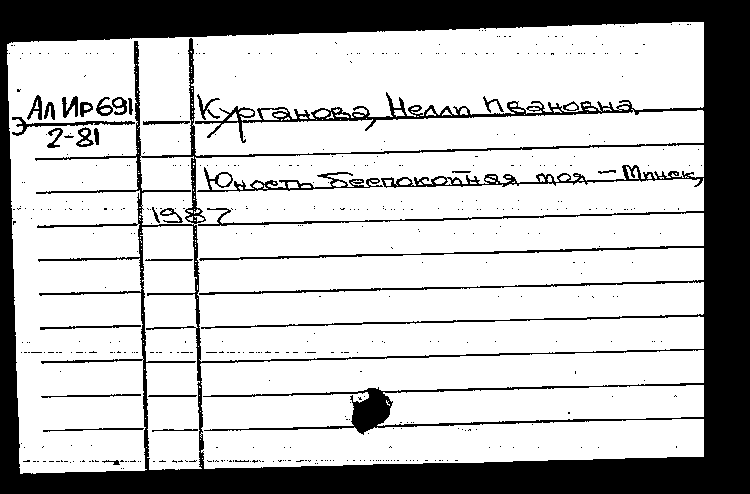 Ал Ир691
Курганова, Нелли Ивановна.
Э
2-81
Юность беспокойная моя – Минск,
1987